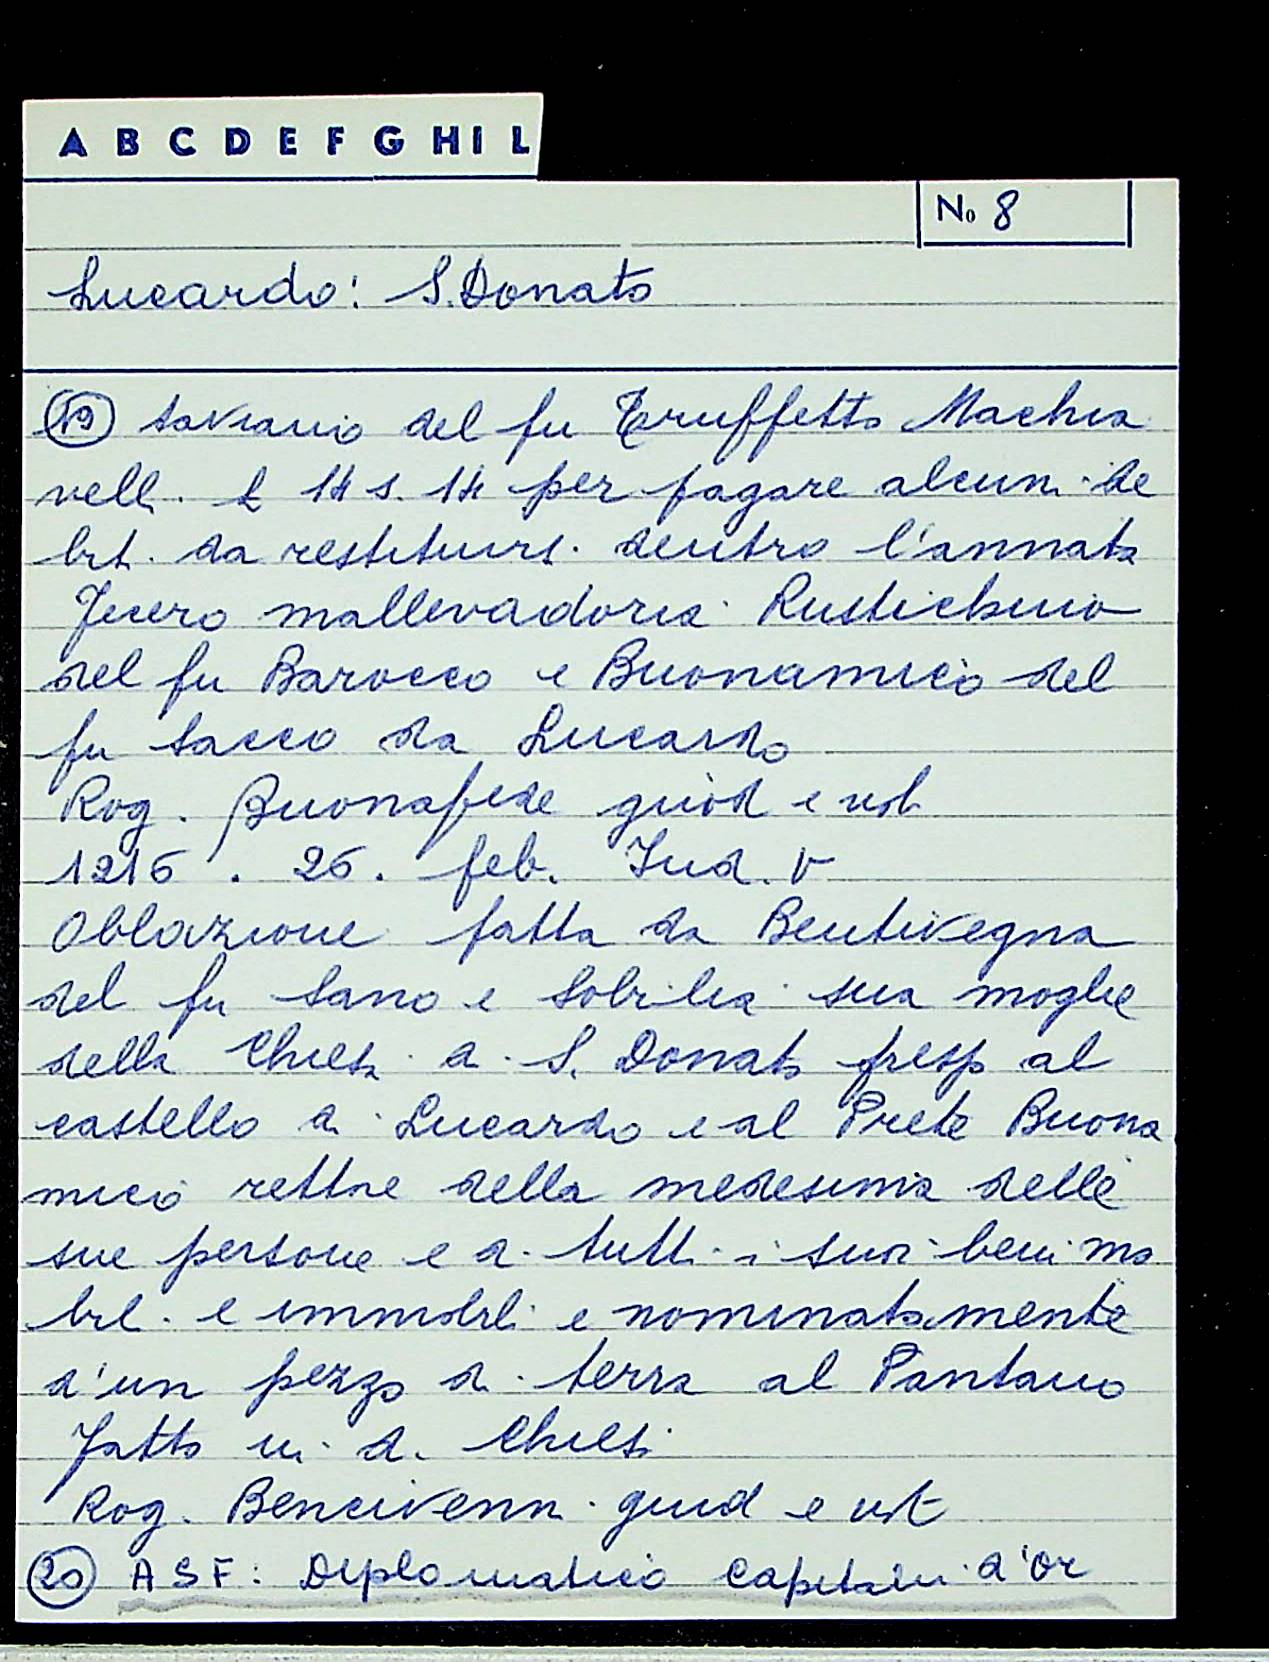 A B C D E F G H I L
No 8
Lucardo: S. Donato
(19) Saviano del fu Truffetto Machia
velli £ 14 s. 14 per pagare alcuni de
biti da restituirsi dentro l'annata
Fecero mallevadoria Rustichino
del fu Barocco e Buonamico del
fu Sacco da Lucardo
Rog. Buonafede giud e not
1216. 26. feb. Ind. V
Oblazione fatta da Bentivegna
del fu Sano e Sobilia sua moglie
della Chiesa di S. Donato presso al
castello di Lucardo e al Prete Buona
mico rettore della medesima delle
sue persone e di tutti i suoi beni mo
bili e immobili e nominatamente
d'un pezzo di terra al Pantano
Fatto in d. Chiesa
Rog. Bencivenni giud e not
(20) ASF: Diplomatico Capitani d'Or